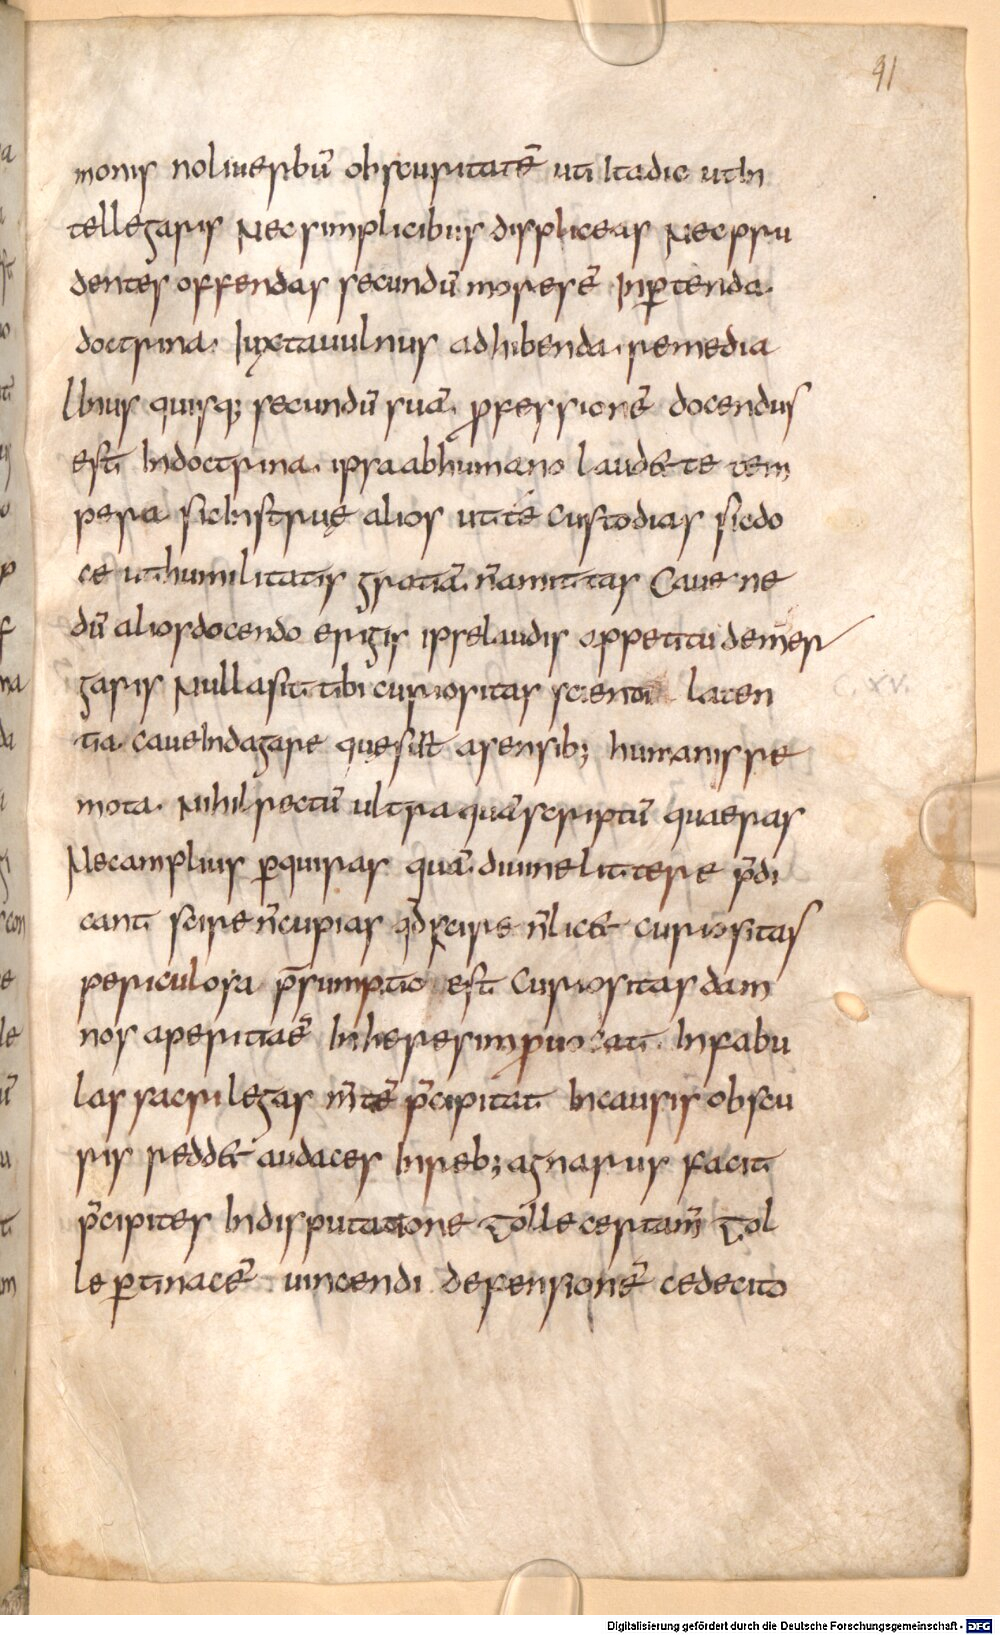 91
monis noli uerbū obscuritatē uti Ita dic ut In
tellegaris Nec simplicibus displiceas Nec pru
dentes offendas secundū mores ē Inptenda
doctrina. Iuxta uulnus adhibenda remedia
Unus quisq; secundū suā professionē docendus
est In doctrina ipsa ab humano laude te tem
pera sic Instrue alios ut te custodias sic do
ce ut humilitatis gratiā n̄ amittas Caue ne
dū alios docendo erigis ipse laudis appetitu demer
garis Nulla sit tibi curiositas sciendi laten
C. XV.
tia caue Indagare que sunt a sensib; humanis re
mota. Nihil rectū ultra quā scriptū quaeras
Nec amplius pquiras quā diuine littere p̄di
cant scire n̄ cupias qd̄ scire n̄ licet curiositas
periculosa p̄sumptio est Curiositas dam
nosa peritia ē In heresim prouocat In fabu
las sacrilegas m̄tē p̄cipitat In causis obscu
ris reddet audaces In reb; agnarus facit
p̄cipites In disputatione Tolle certam̄ Tol
le ptinacē uincendi defensionē cede cito
Digitalisierung gefördert durch die Deutsche Forschungsgemeinschaft - DFG